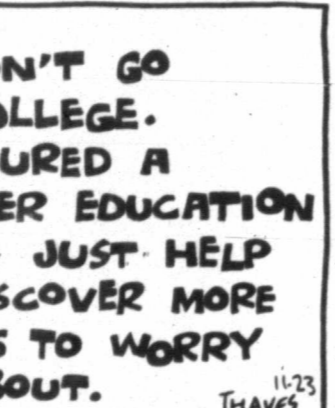 N'T GO
OLLEGE.
URED A
ER EDUCATION
JUST HELP
SCOVER MORE
S TO WORRY
BOUT.
11-23
THAVES